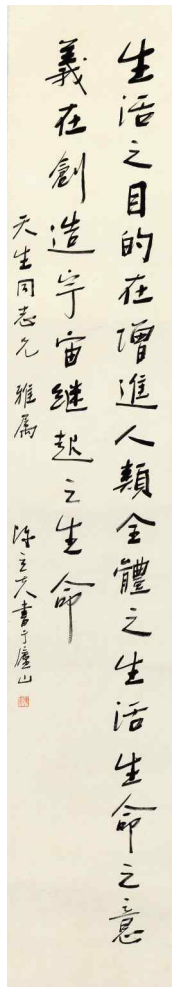 生活之目的在增進人類全體之生活生命之意
義在創造宇宙繼起之生命
天生同志兄 雅屬
陳立夫書于廬山